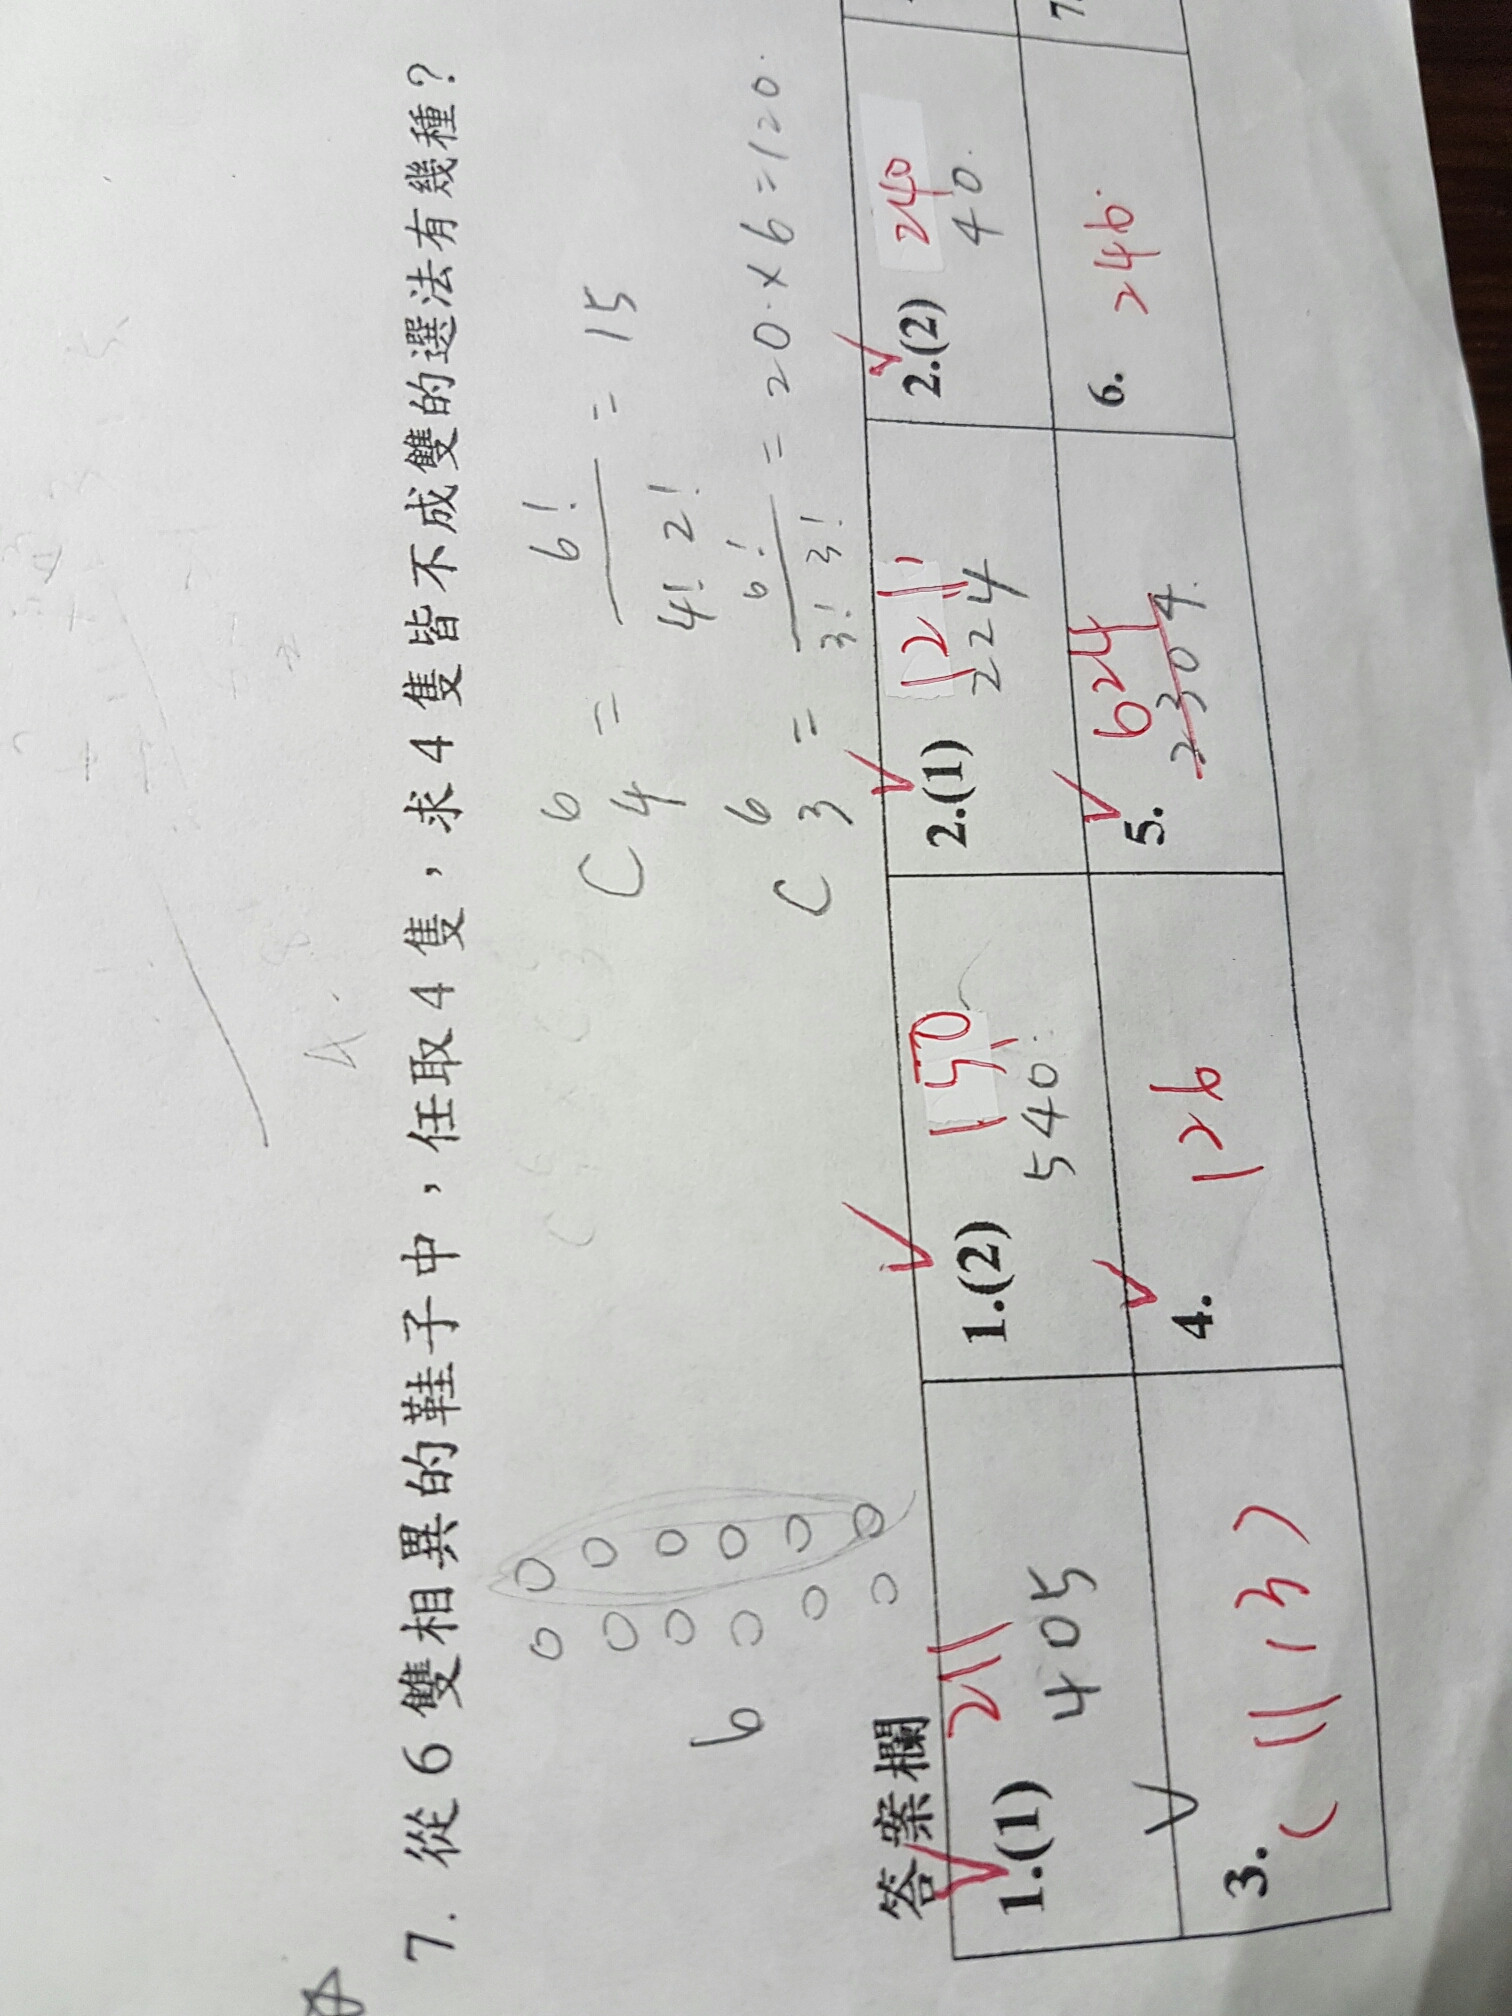 7. 從6雙相異的鞋子中，任取4隻，求4隻皆不成雙的選法有幾種？
6
C 6 4 = 6! / 4! 2! = 15
C 6 3 = 6! / 3! 3! = 20 × 6 = 120.
答案欄
1.(1) 211 405
1.(2) 150 540.
2.(1) 121 224
2.(2) 240 40.
3. (11,3)
4. 126
5. 624 2304.
6. 246.
7.